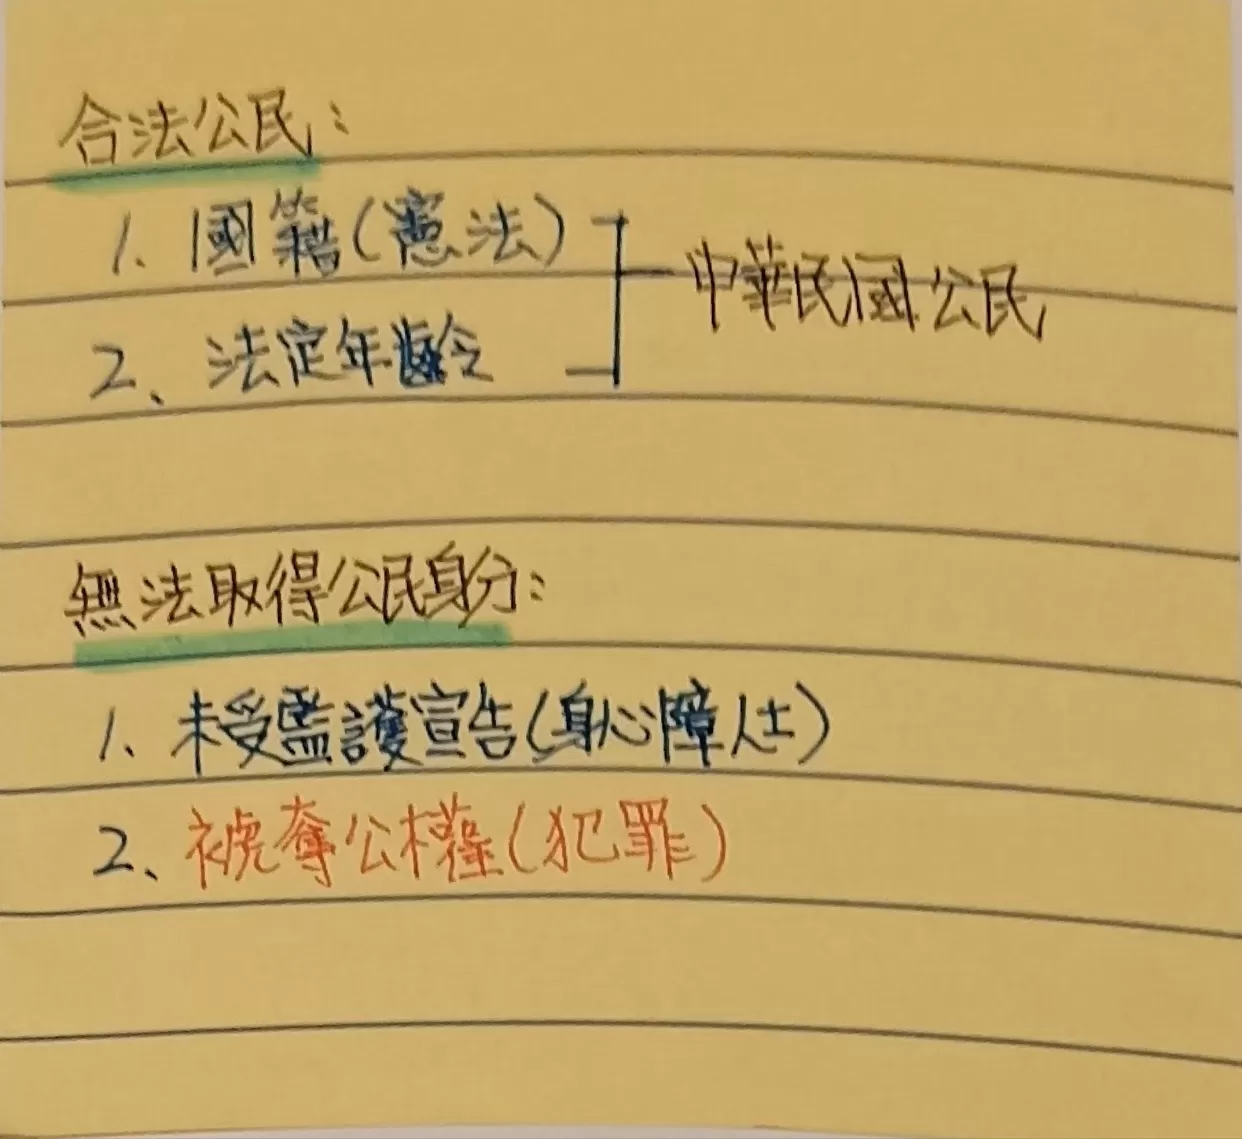 合法公民：
1、國籍（憲法）
2、法定年齡
中華民國公民
無法取得公民身分：
1、未受監護宣告（身心障人士）
2、被奪公權（犯罪）